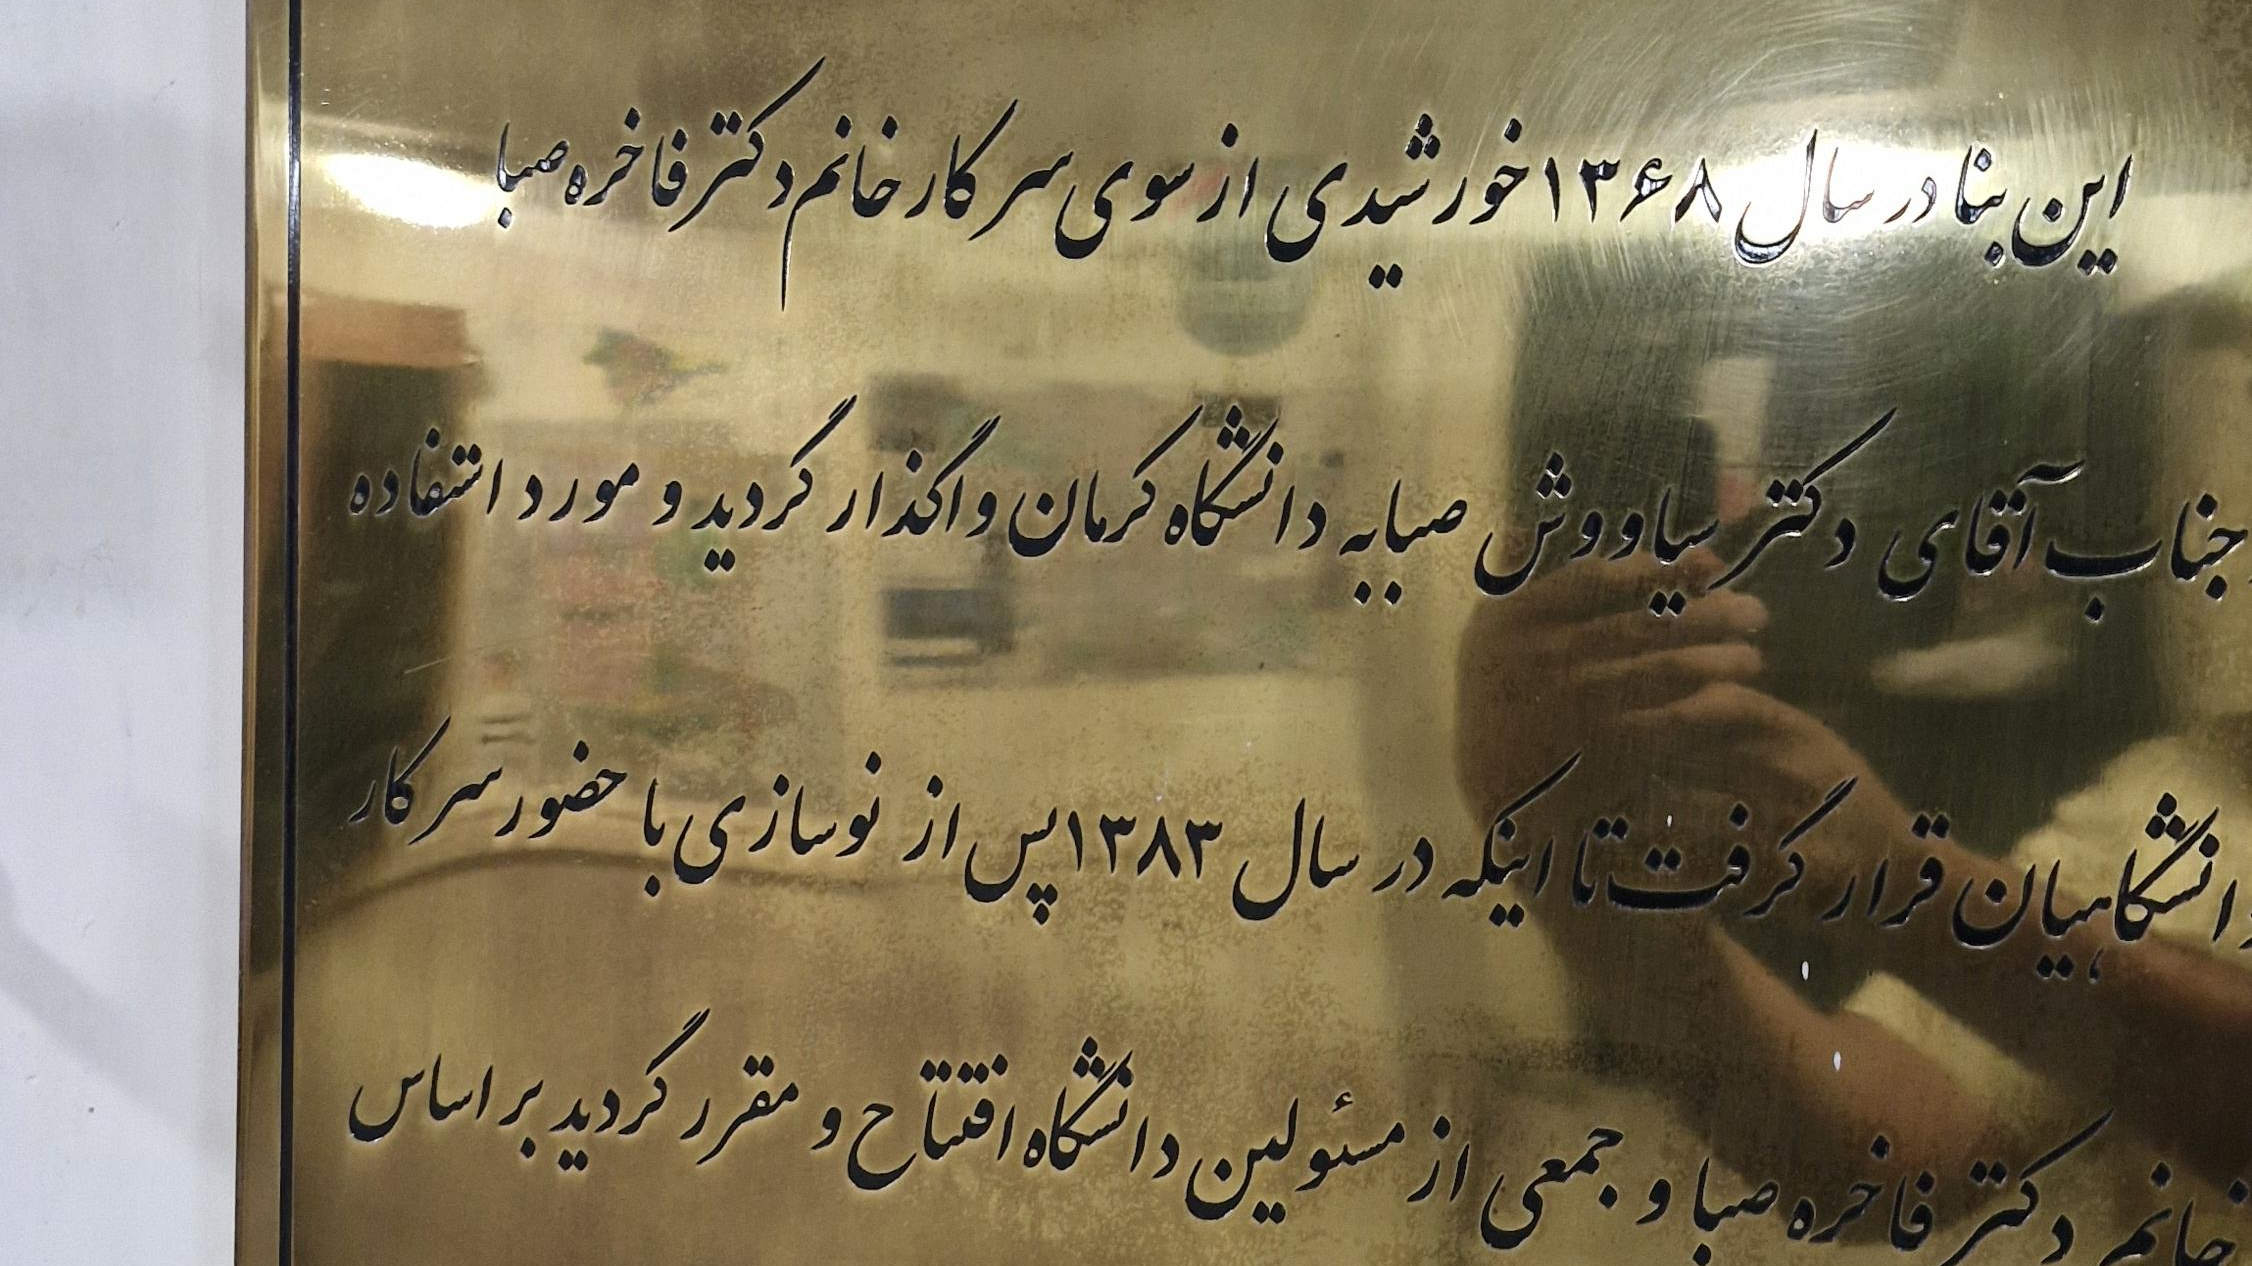 این بنا در سال ۱۳۶۸ خورشیدی از سوی سرکار خانم دکتر فاخره صبا
جناب آقای دکتر سیاووش صبا به دانشگاه کرمان واگذار گردید و مورد استفاده
دانشگاهیان قرار گرفت تا اینکه در سال ۱۳۸۳ پس از نوسازی با حضور سرکار
خانم دکتر فاخره صبا و جمعی از مسئولین دانشگاه افتتاح و مقرر گردید بر اساس